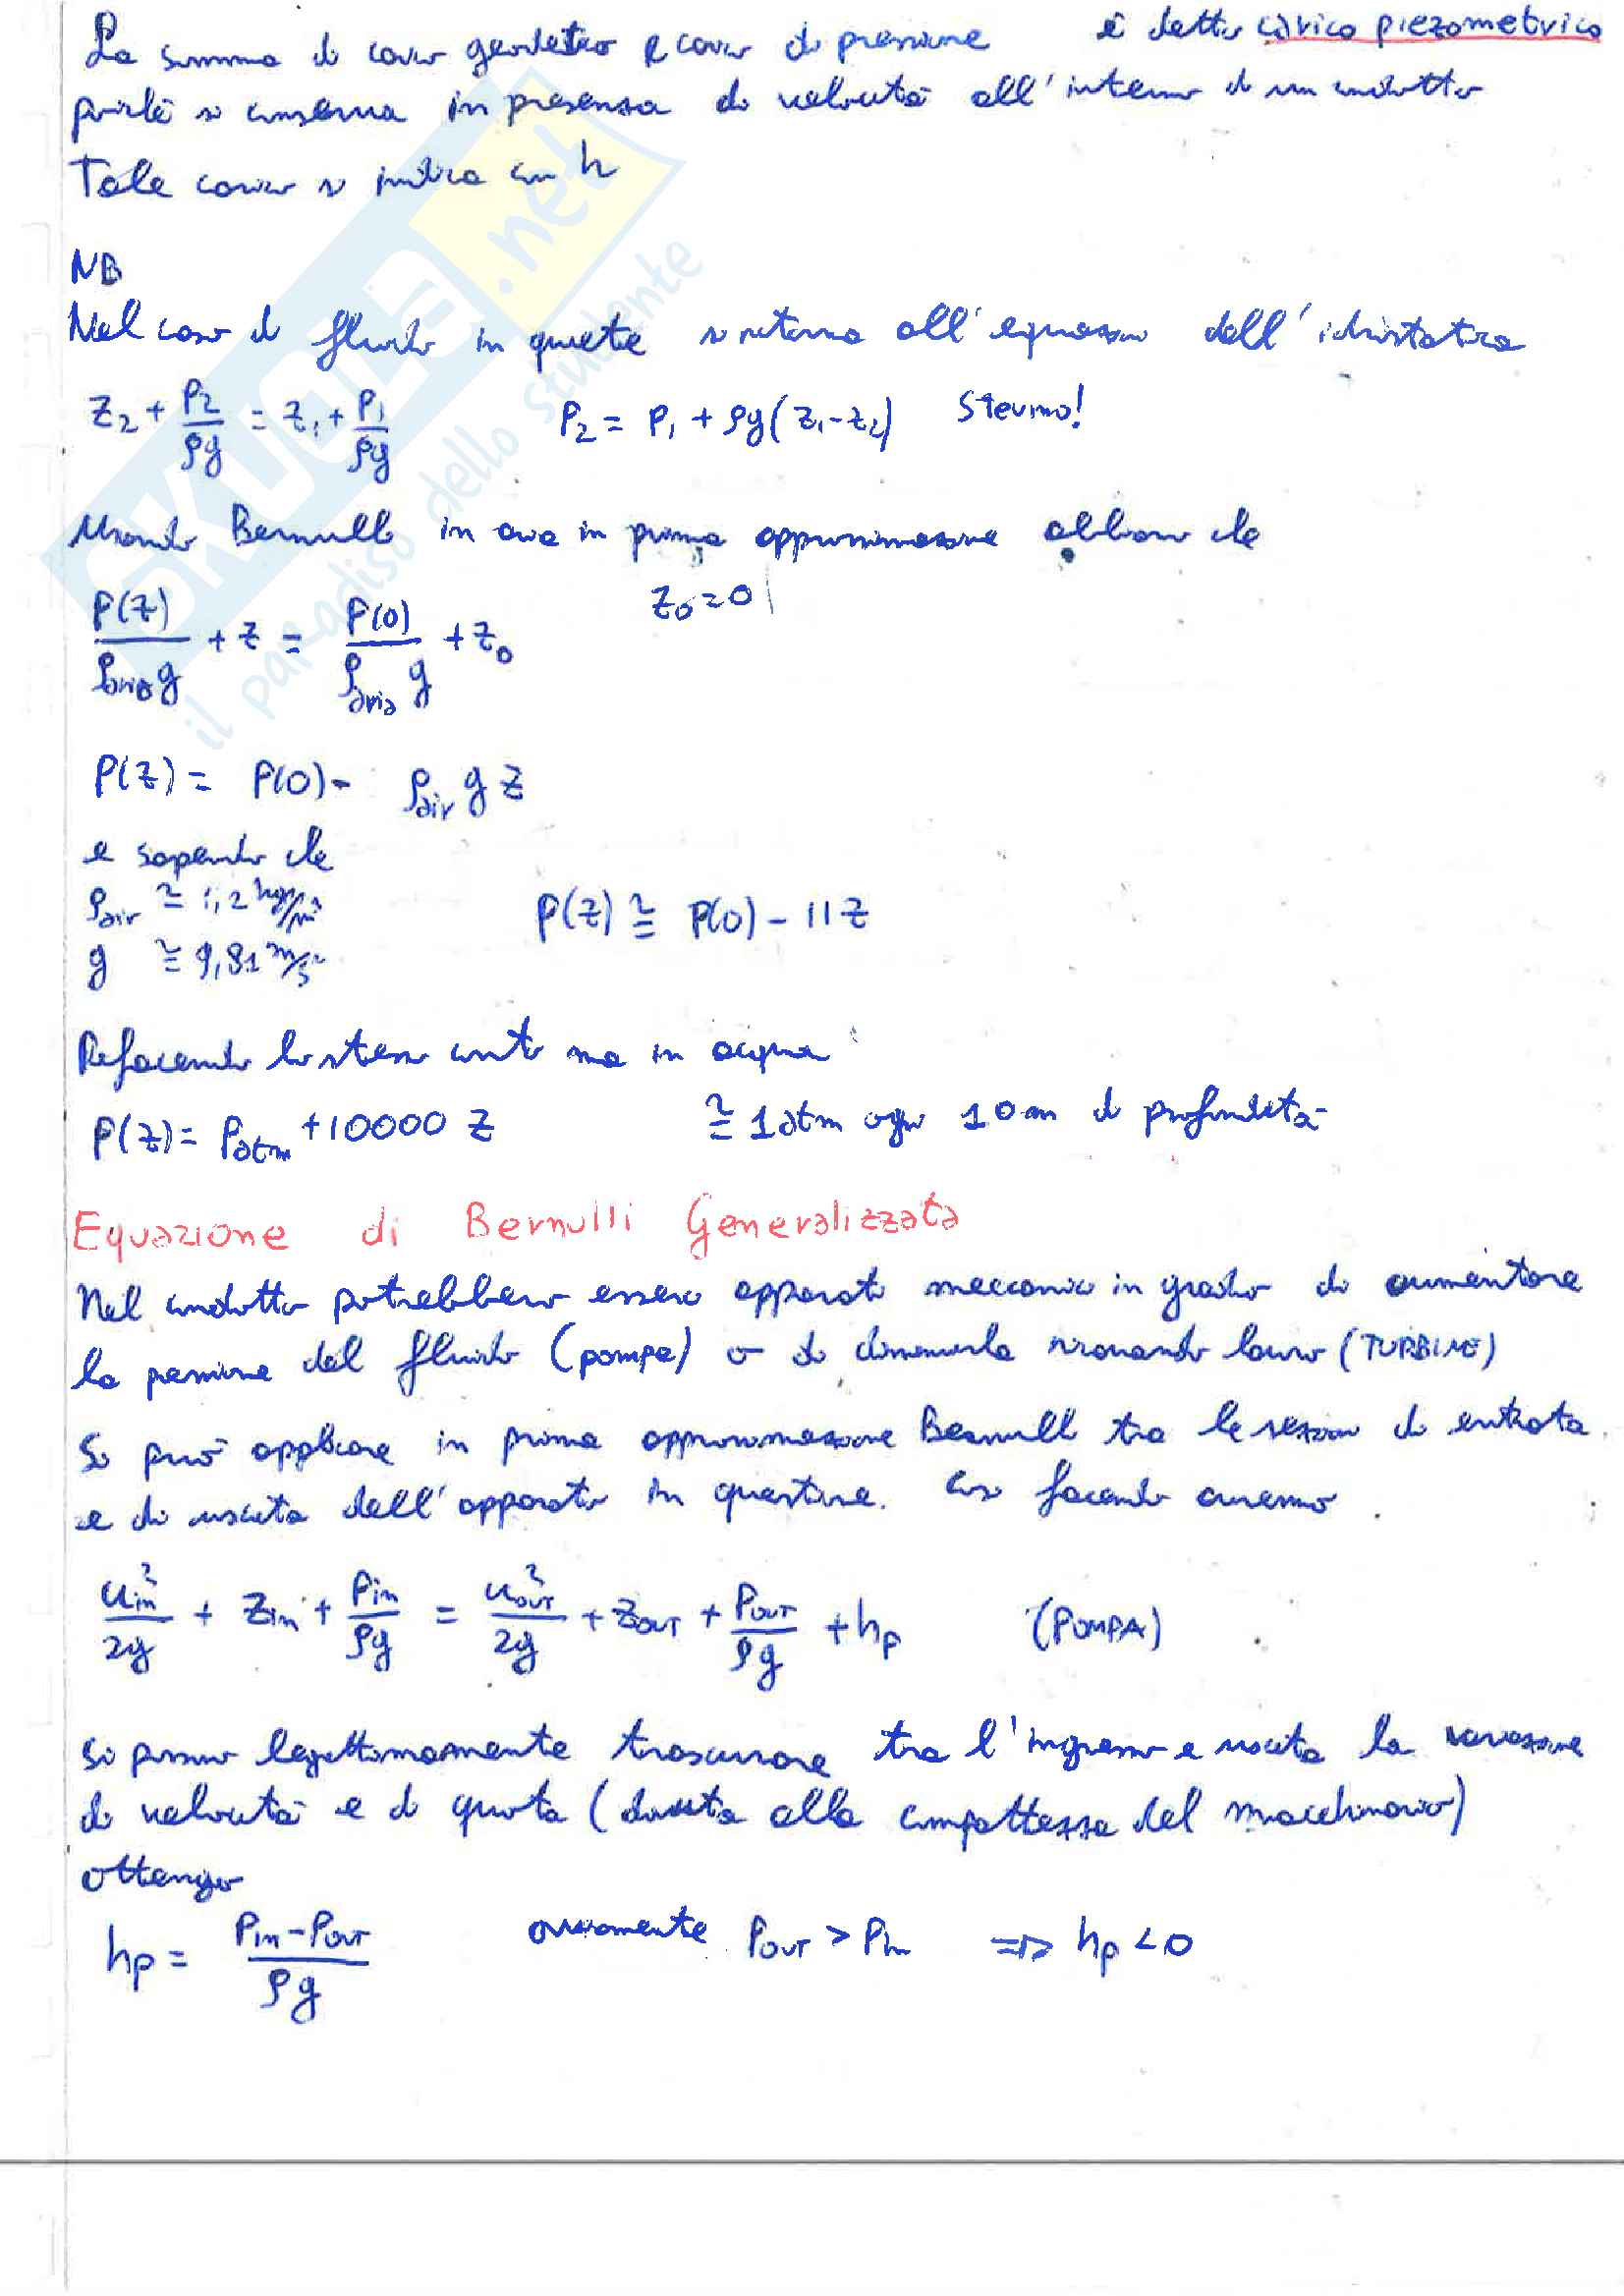 La somma di carico geodetico e carico di pressione è detto carico piezometrico
poichè si conserva in presenza di velocità all'interno di un condotto
Tale carico si indica con h
NB
Nel caso di fluido in quiete si ritorna all'equazione dell'idrostatica
z₂ + P₂/ρg = z₁ + P₁/ρg    P₂ = P₁ + ρg(z₁-z₂)    Stevino!
Usando Bernulli in aria in prima approssimazione abbiamo che
P(z)/ρaria g + z = P(0)/ρaria g + z₀    z₀=0
P(z) = P(0) - ρair g z
e sapendo che
ρair ≅ 1,2 kg/m³
g ≅ 9,81 m/s²    P(z) ≅ P(0) - 11z
Rifacendo lo stesso conto ma in acqua
P(z) = Patm + 10000 z    ≅ 1atm ogni 10m di profondità
Equazione di Bernulli Generalizzata
Nel condotto potrebbero esserci apparati meccanici in grado di aumentare
la pressione del fluido (pompe) o di diminuirla ricavando lavoro (TURBINE)
Si può applicare in prima approssimazione Bernulli tra le sezioni di entrata
e di uscita dell'apparato in questione. Così facendo avremo
uin²/2g + zin + Pin/ρg = uout²/2g + zout + Pout/ρg + hp    (POMPA)
Si possono legittimamente trascurare tra l'ingresso e uscita la variazione
di velocità e di quota (dovuta alla compattezza del macchinario)
ottengo
hp = Pin-Pout/ρg    ovviamente Pout > Pin => hp < 0
SKUOLA.net
il paradiso dello studente